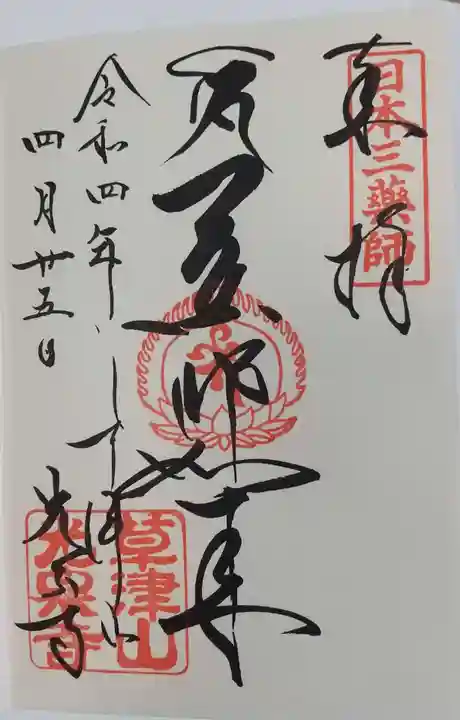 奉拝
日本三薬師
薬師如来
令和四年
四月廿五日
草津山
光泉寺
草津山
光泉寺